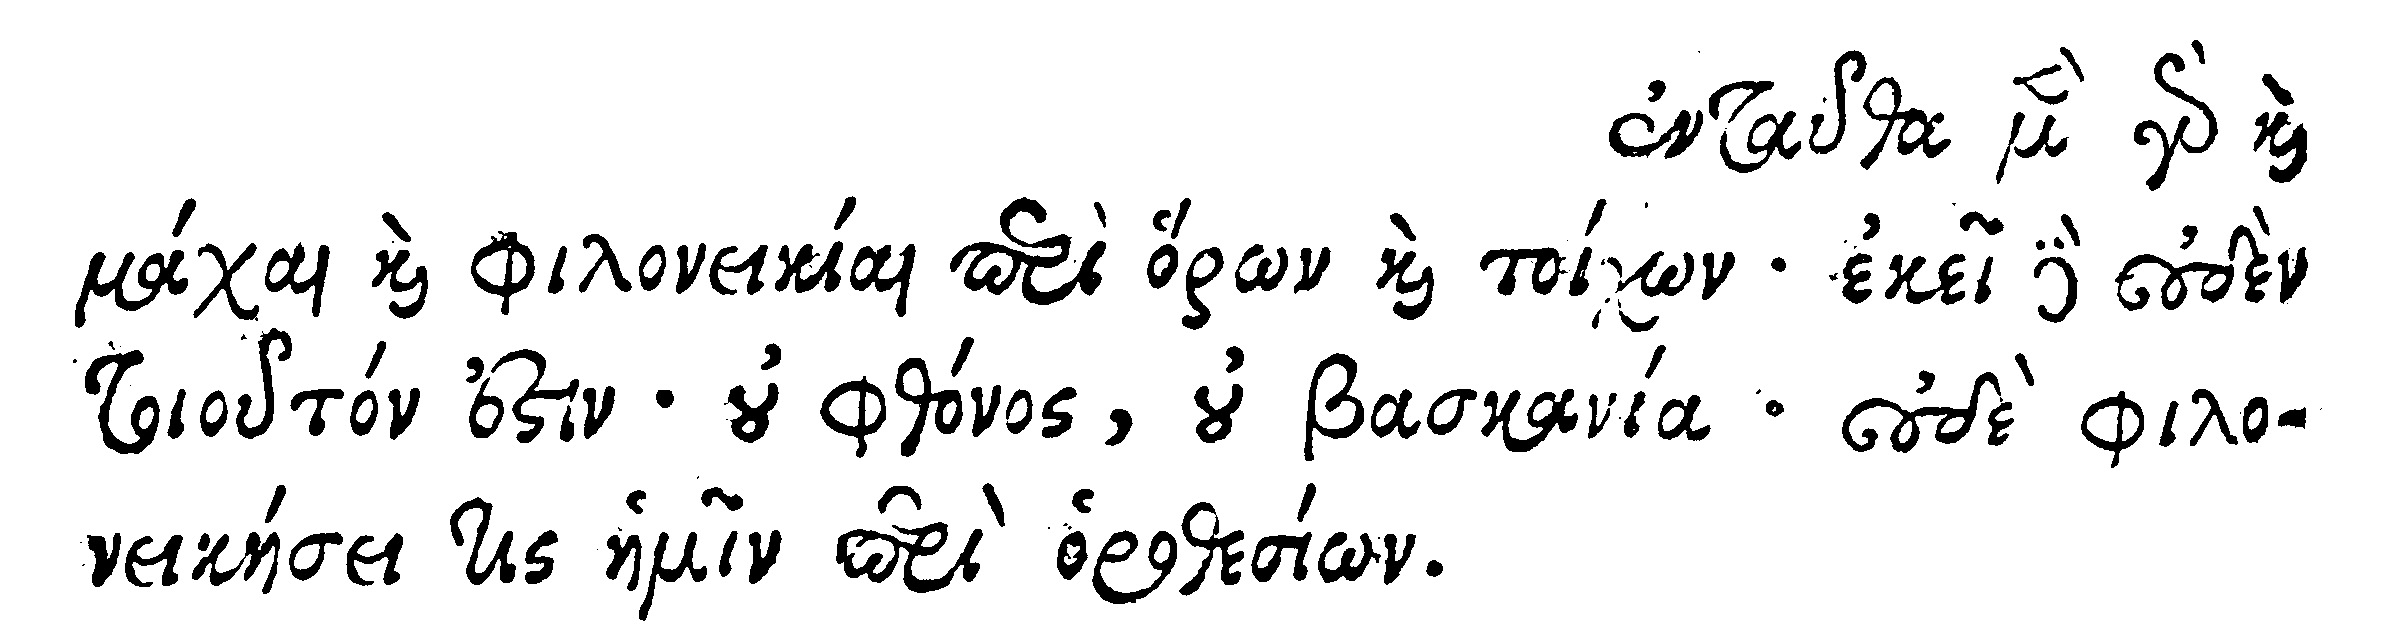 ἐνταῦθα μὲν γὰρ καὶ
μάχαι καὶ φιλονεικίαι περὶ ὅρων καὶ τοίχων · ἐκεῖ δὲ οὐδὲν
τοιοῦτόν ἐστιν · οὐ φθόνος, οὐ βασκανία · οὐδὲ φιλο-
νεικήσει τις ἡμῖν περὶ ὁροθεσίων.